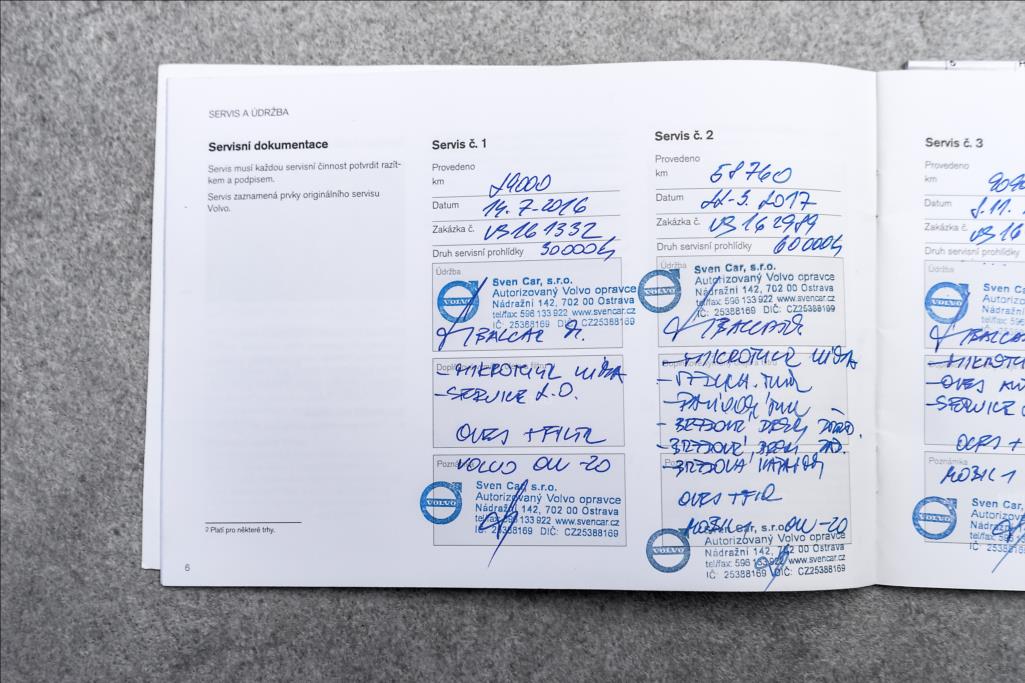 SERVIS A ÚDRŽBA
Servisní dokumentace
Servis musí každou servisní činnost potvrdit razít-
kem a podpisem.
Servis zaznamená prvky originálního servisu
Volvo.
2 Platí pro některé trhy.
6
Servis č. 1
Provedeno
km 29000
Datum 14.7.2016
Zakázka č. U3161332
Druh servisní prohlídky 30000
Údržba
Sven Car, s.r.o.
Autorizovaný Volvo opravce
Nádražní 142, 702 00 Ostrava
tel/fax: 596 133 922 www.svencar.cz
IČ: 25388169 DIČ: CZ25388169
VOLVO
- SERVICE 2.0.
OLEJ + FILTR
Poznámka
VOLVO 0W-20
Sven Car, s.r.o.
Autorizovaný Volvo opravce
Nádražní 142, 702 00 Ostrava
tel/fax: 596 133 922 www.svencar.cz
IČ: 25388169 DIČ: CZ25388169
VOLVO
Servis č. 2
Provedeno
km 58760
Datum 22-3.2017
Zakázka č. U3162989
Druh servisní prohlídky 60000
Údržba
Sven Car, s.r.o.
Autorizovaný Volvo opravce
Nádražní 142, 702 00 Ostrava
tel/fax: 596 133 922 www.svencar.cz
IČ: 25388169 DIČ: CZ25388169
VOLVO
OLEJ + FILTR
0W-20
Sven Car, s.r.o.
Autorizovaný Volvo opravce
Nádražní 142, 702 00 Ostrava
tel/fax: 596 133 922 www.svencar.cz
IČ: 25388169 DIČ: CZ25388169
VOLVO
Servis č. 3
Provedeno
km
Datum
Zakázka č. U316
Druh servisní prohlídky
Údržba
Sven C
Autorizov
Nádražní
tel/fax: 596
IČ: 253881
VOLVO
OLEJ +
Poznámka
MOBIL 1
Sven
Autorizo
Nádražní
tel/fax: 596
IČ: 25388
VOLVO